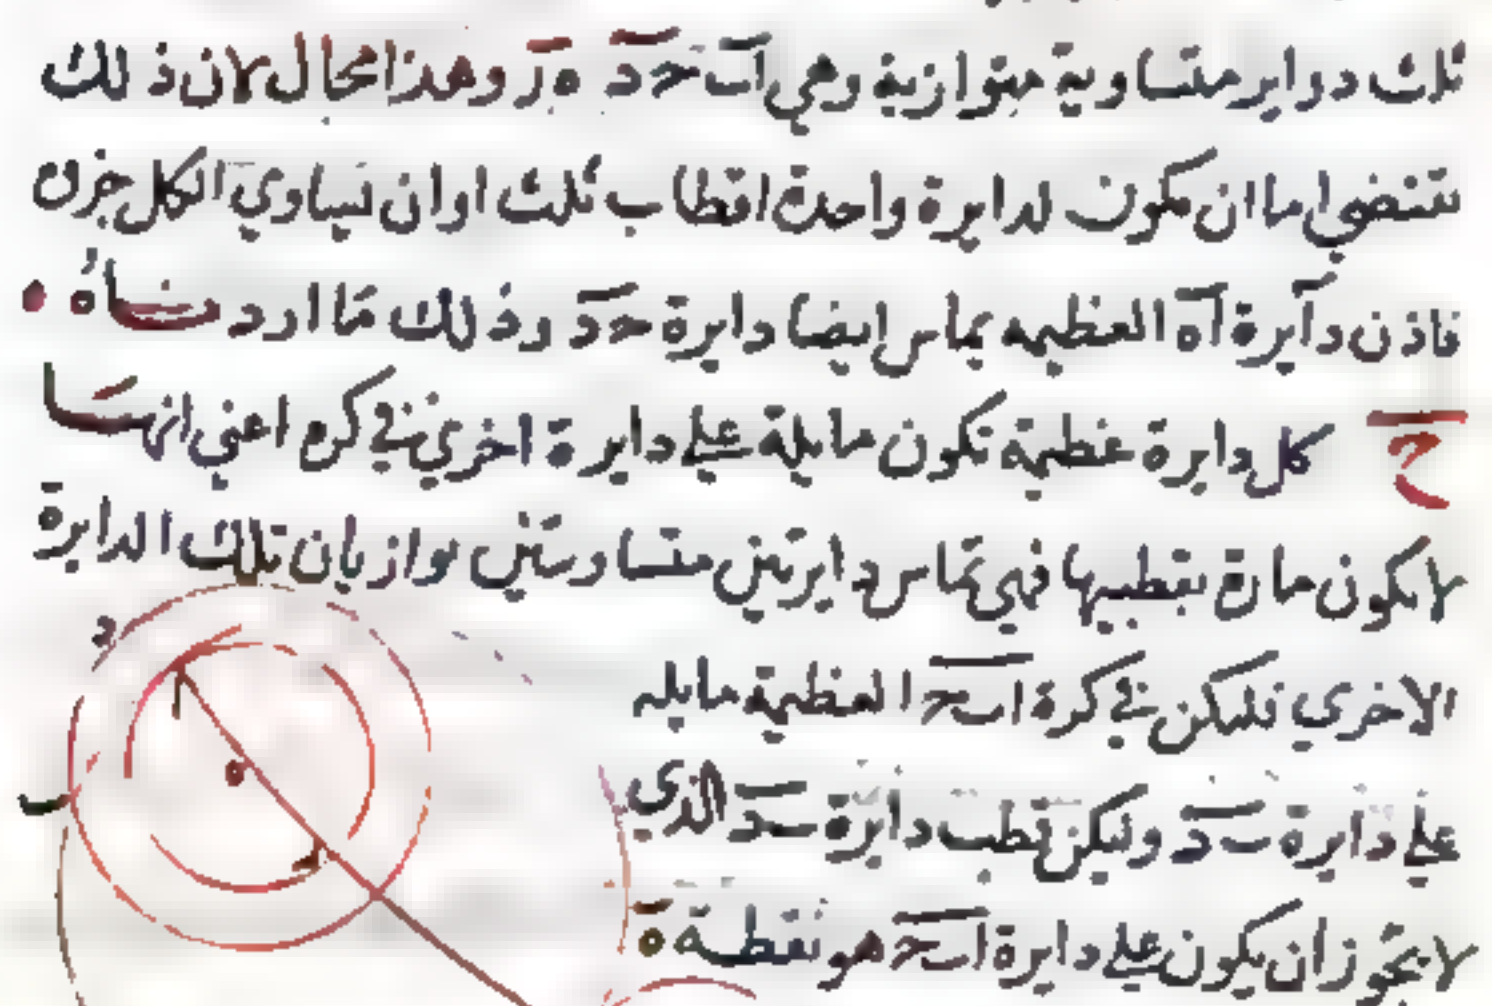 ثلث دواير متساوية متوازية وهي اب حد ه ر وهذا محال لان ذلك
يقتضي اما ان يكون لدايرة واحدة اقطاب ثلث او ان يساوي الكل جزء
فاذن دآيرة اه العظيمه يماس ايضا دايرة حد وذلك مَا اردناهُ ه
ح كل دايرة عظيمة تكون مايلة علي دايرة اخري في كره اعني انها
لا يكون مارة بقطبيها فهي تماس دايرتين متساويتين يوازيان تلك الدايرة
الاخري فليكن في كرة ابح العظيمة مايله
علي دايرة بد وليكن قطب دايرة بد الذي
لا يجوز ان يكون علي دايرة ابح هو نقطة ه
د
ا
ه
ب